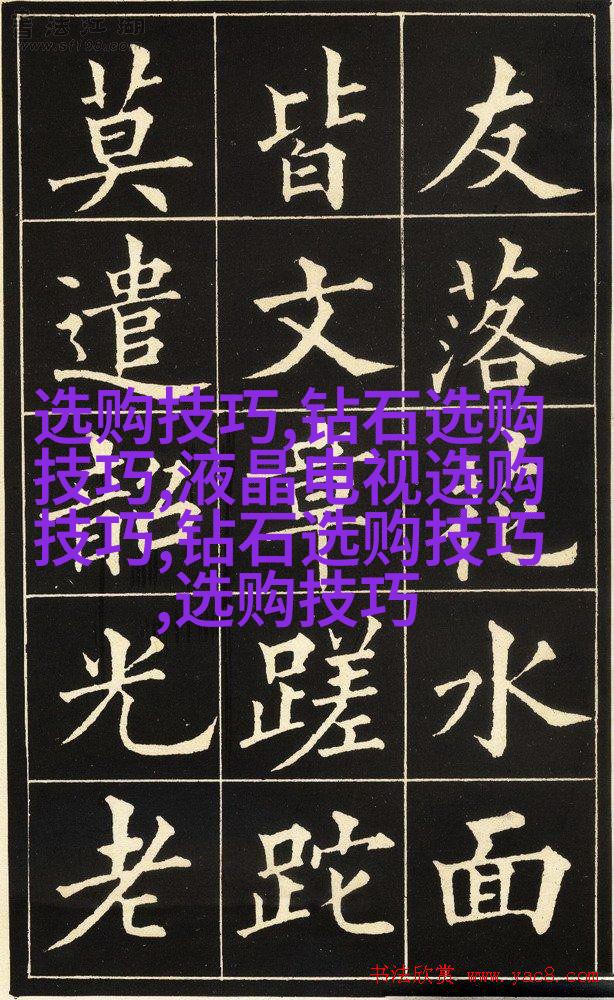 书法江湖
www.sf108.com
友落花水面
皆文章蹉跎
莫遣韶光老
选购技巧,钻石选购
技巧,液晶电视选购
技巧,钻石选购技巧
,选购技巧
书法欣赏 www.yac8.com